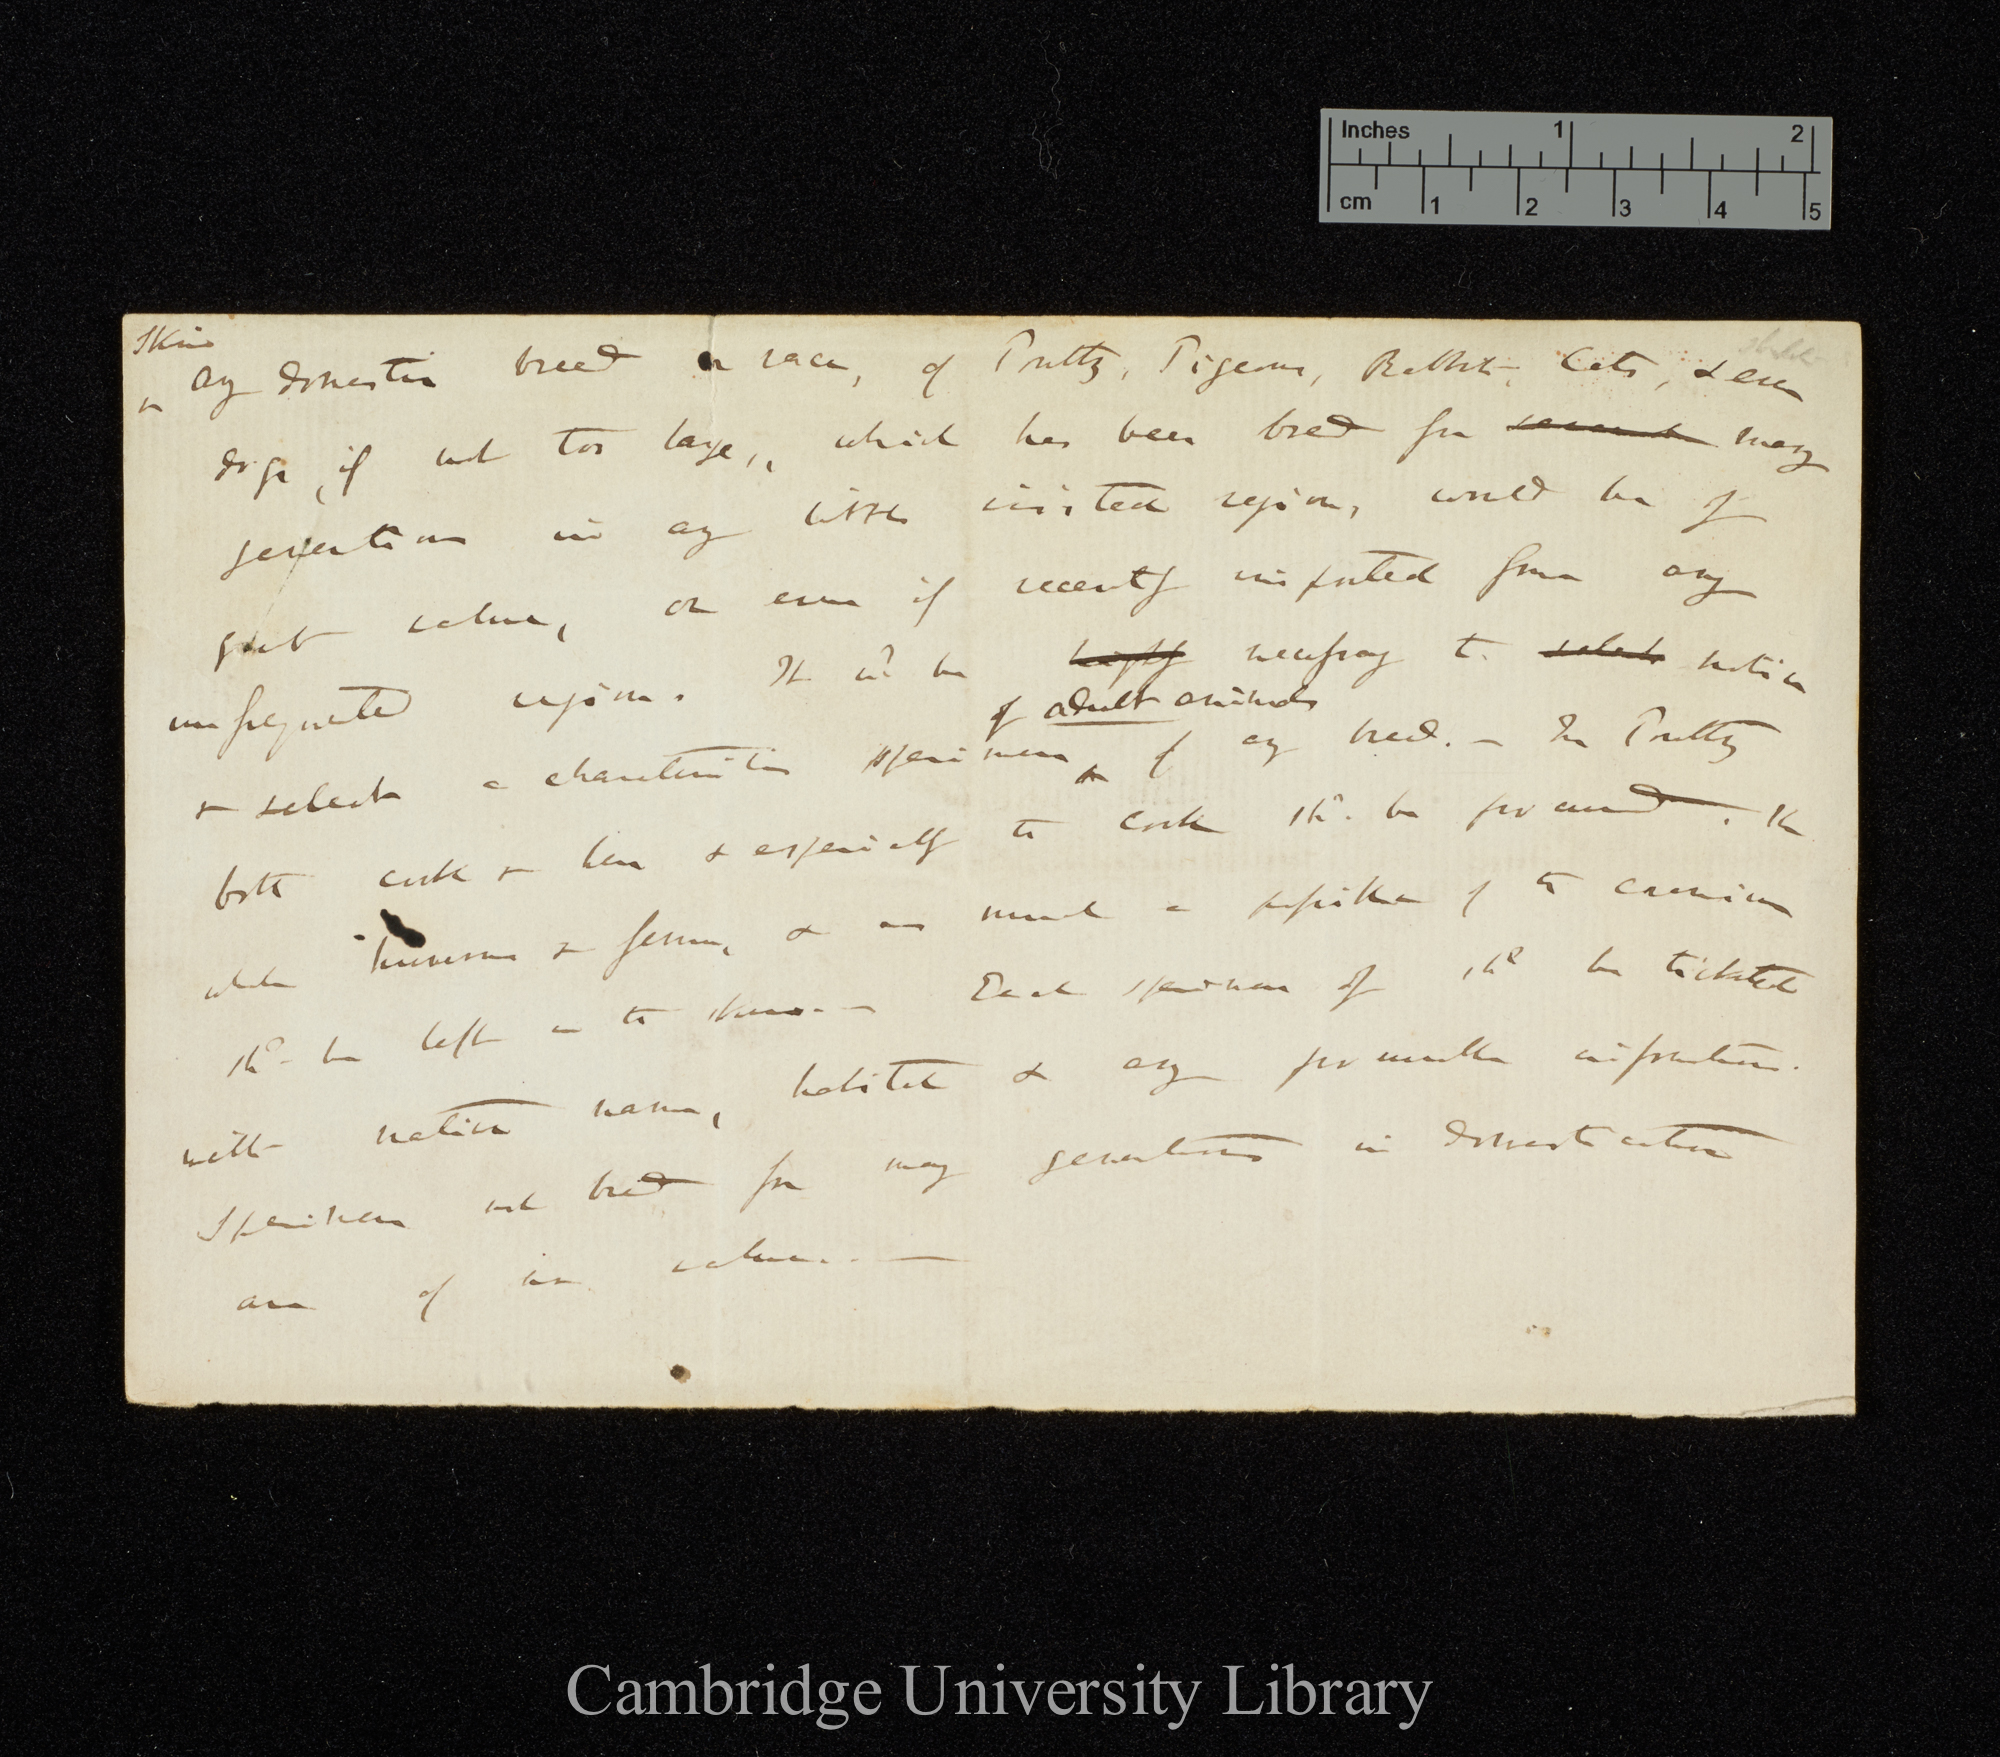 Inches 1 2
cm 1 2 3 4 5
Skins
Any domestic breed or race, of Poultry, Pigeons, Rabbits, Cats, & even
dogs, if not too large, which has been bred for many
generations in any little visited region, would be of
great value, or even if recently imported from any
unfrequented region. It wd be highly necessary to select notice
of adult animals
& select a characteristic specimen of any breed. — In Poultry
both cock & hen & especially the cock shd. be procured. The
humerus & femur, & as much as possible of the cranium
shd. be left in the skins. — Each specimen shd be ticketed
with native name, habitat & any procurable information.
Specimens not bred for many generations in domestication
are of no value. —
Cambridge University Library